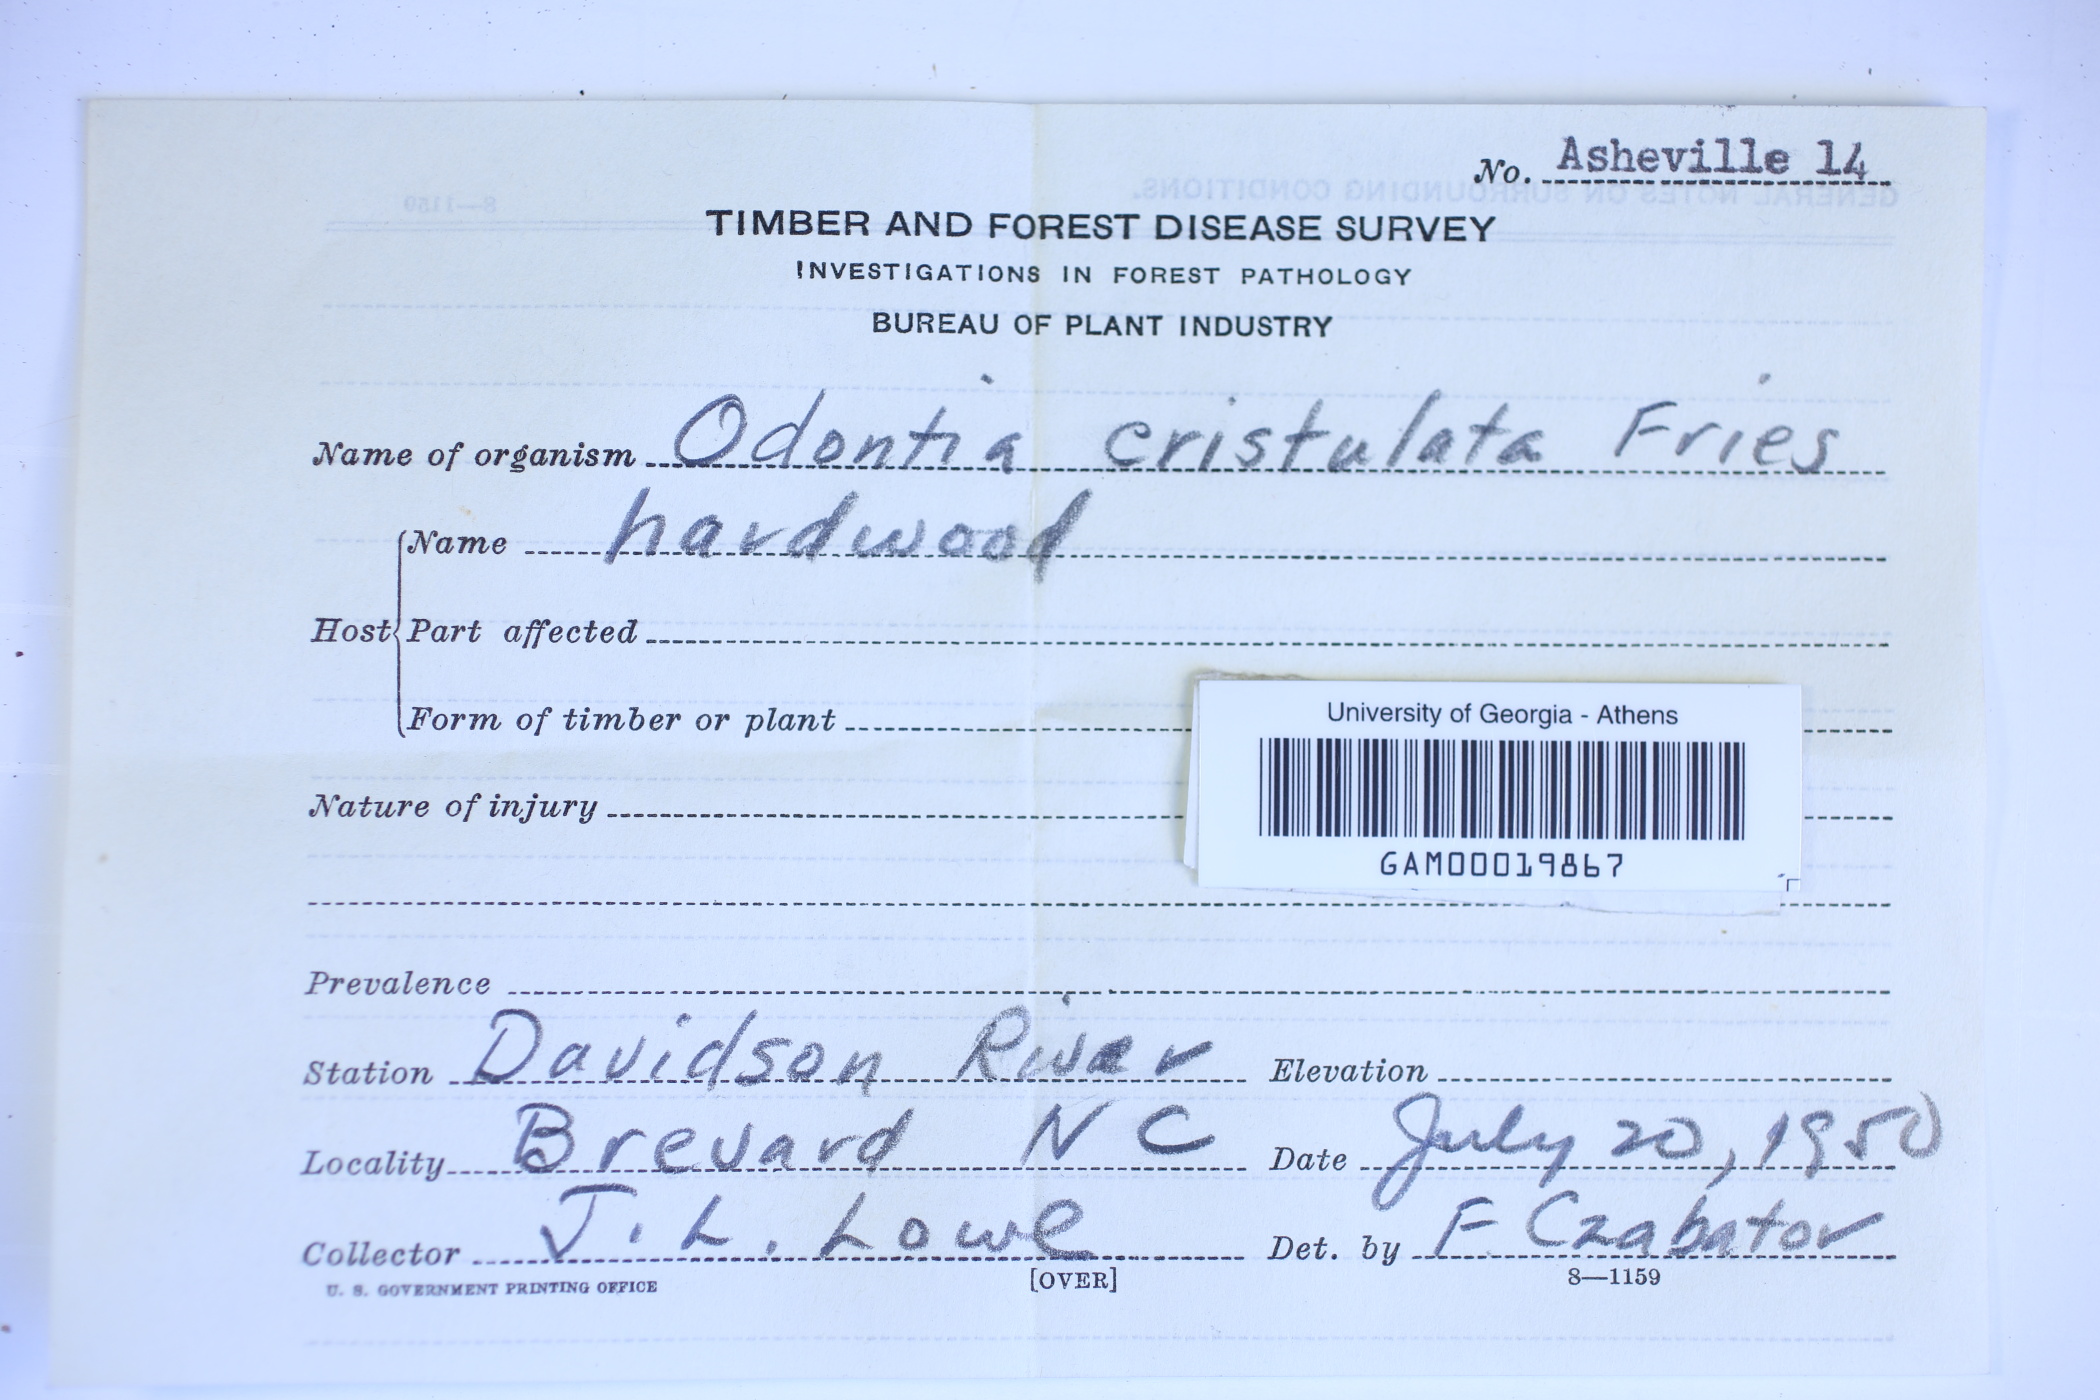 No. Asheville 14
GENERAL NOTES ON SURROUNDING CONDITIONS.
8—1159
TIMBER AND FOREST DISEASE SURVEY
INVESTIGATIONS IN FOREST PATHOLOGY
BUREAU OF PLANT INDUSTRY
Name of organism Odontia cristulata Fries
Name hardwood
Host Part affected
Form of timber or plant
University of Georgia - Athens
Nature of injury
GAM00019867
Prevalence
Station Davidson River Elevation
Locality Brevard N C Date July 20, 1950
Collector J. L. Lowe Det. by F. Czabator
U. S. GOVERNMENT PRINTING OFFICE [OVER] 8—1159